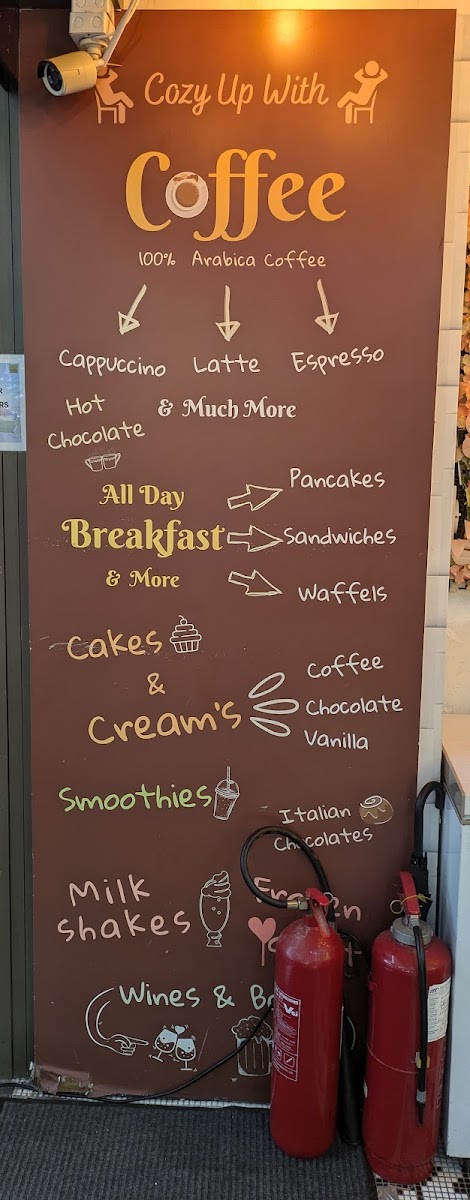 Cozy Up With
Coffee
100% Arabica Coffee
Cappuccino Latte Espresso
Hot
Chocolate
& Much More
All Day
Breakfast
& More
Pancakes
Sandwiches
Waffels
Cakes
&
Cream's
Coffee
Chocolate
Vanilla
Smoothies
Italian
Chocolates
Milk
Shakes
Wines &